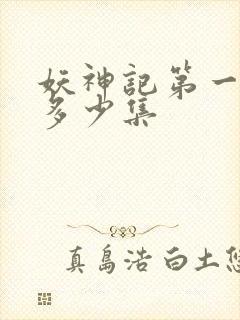 妖神記第一
多少集
真島浩 白土悠